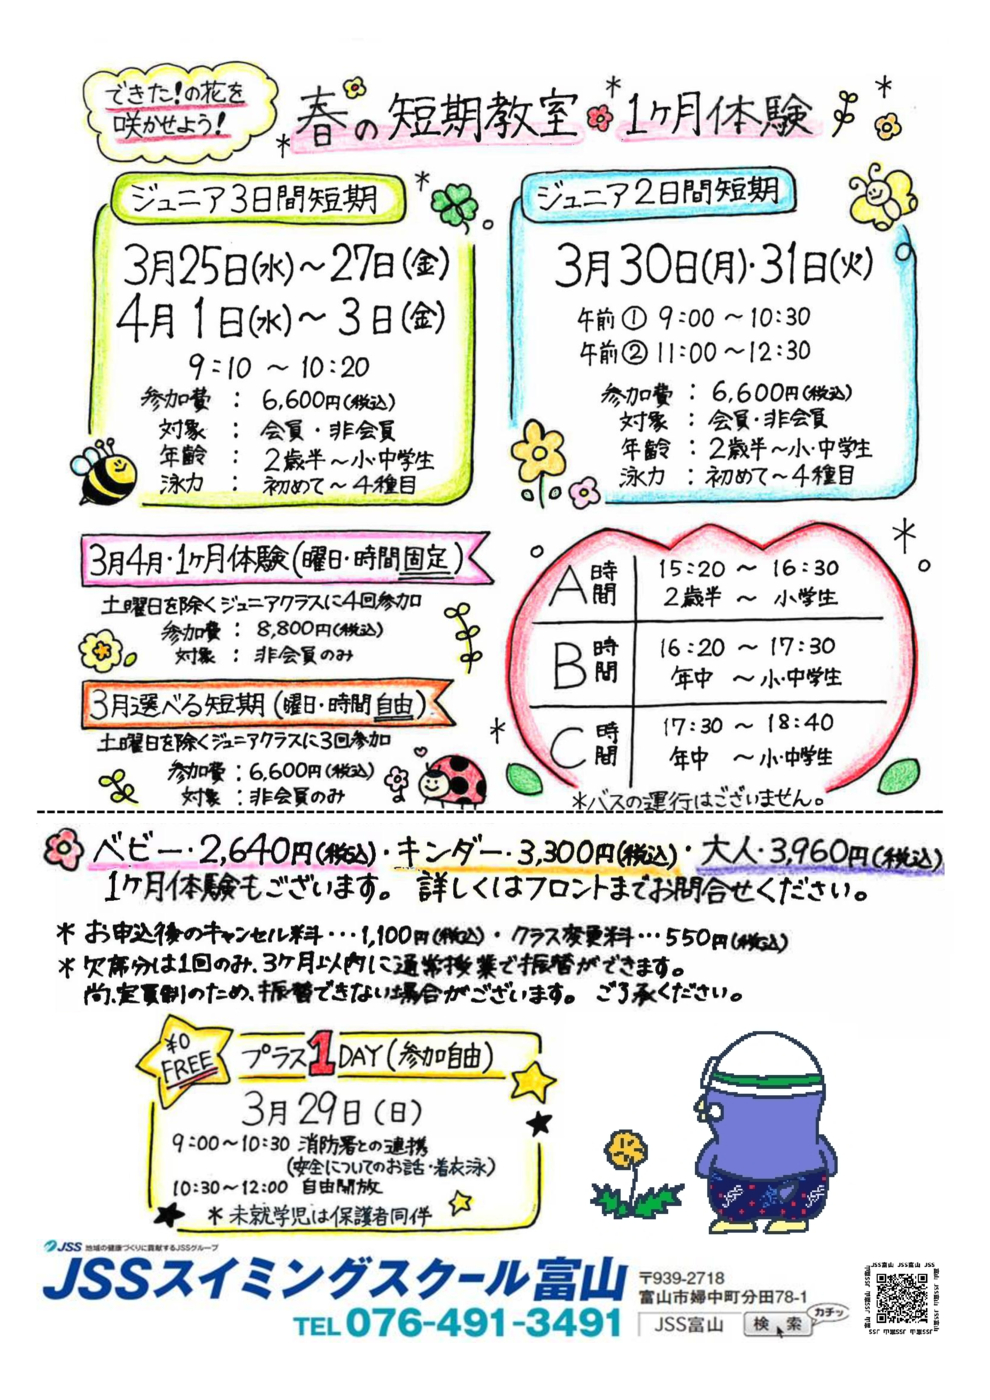 できた!の花を
咲かせよう!
春の短期教室 1ヶ月体験
ジュニア3日間短期
3月25日(水)～27日(金)
4月1日(水)～3日(金)
9:10 ～ 10:20
参加費 : 6,600円(税込)
対象 : 会員・非会員
年齢 : 2歳半～小・中学生
泳力 : 初めて～4種目
ジュニア2日間短期
3月30日(月)・31日(火)
午前① 9:00 ～10:30
午前② 11:00 ～12:30
参加費 : 6,600円(税込)
対象 : 会員・非会員
年齢 : 2歳半～小・中学生
泳力 : 初めて～4種目
3月4月・1ヶ月体験(曜日・時間固定)
土曜日を除くジュニアクラスに4回参加
参加費 : 8,800円(税込)
対象 : 非会員のみ
3月選べる短期(曜日・時間自由)
土曜日を除くジュニアクラスに3回参加
参加費 : 6,600円(税込)
対象 : 非会員のみ
A時間 15:20 ～ 16:30
2歳半 ～ 小学生
B時間 16:20 ～ 17:30
年中 ～小・中学生
C時間 17:30 ～ 18:40
年中 ～小・中学生
*バスの運行はございません。
ベビー・2,640円(税込)・キンダー・3,300円(税込)・大人・3,960円(税込)
1ヶ月体験もございます。 詳しくはフロントまでお問合せください。
* お申込後のキャンセル料…1,100円(税込)・クラス変更料…550円(税込)
* 欠席分は1回のみ、3ヶ月以内に通常授業で振替ができます。
尚、定員制のため、振替できない場合がございます。 ご了承ください。
¥0
FREE
プラス1DAY(参加自由)
3月29日(日)
9:00～10:30 消防署との連携
(安全についてのお話・着衣泳)
10:30～12:00 自由開放
* 未就学児は保護者同伴
JSS
JSS
JSS 地域の健康づくりに貢献するJSSグループ
JSSスイミングスクール富山
TEL 076-491-3491
〒939-2718
富山市婦中町分田78-1
JSS富山 検索
カチッ
JSS富山 JSS富山 JSS
富山 JSS富山 JSS富山
JSS富山 JSS富山 JSS
富山 JSS富山 JSS富山